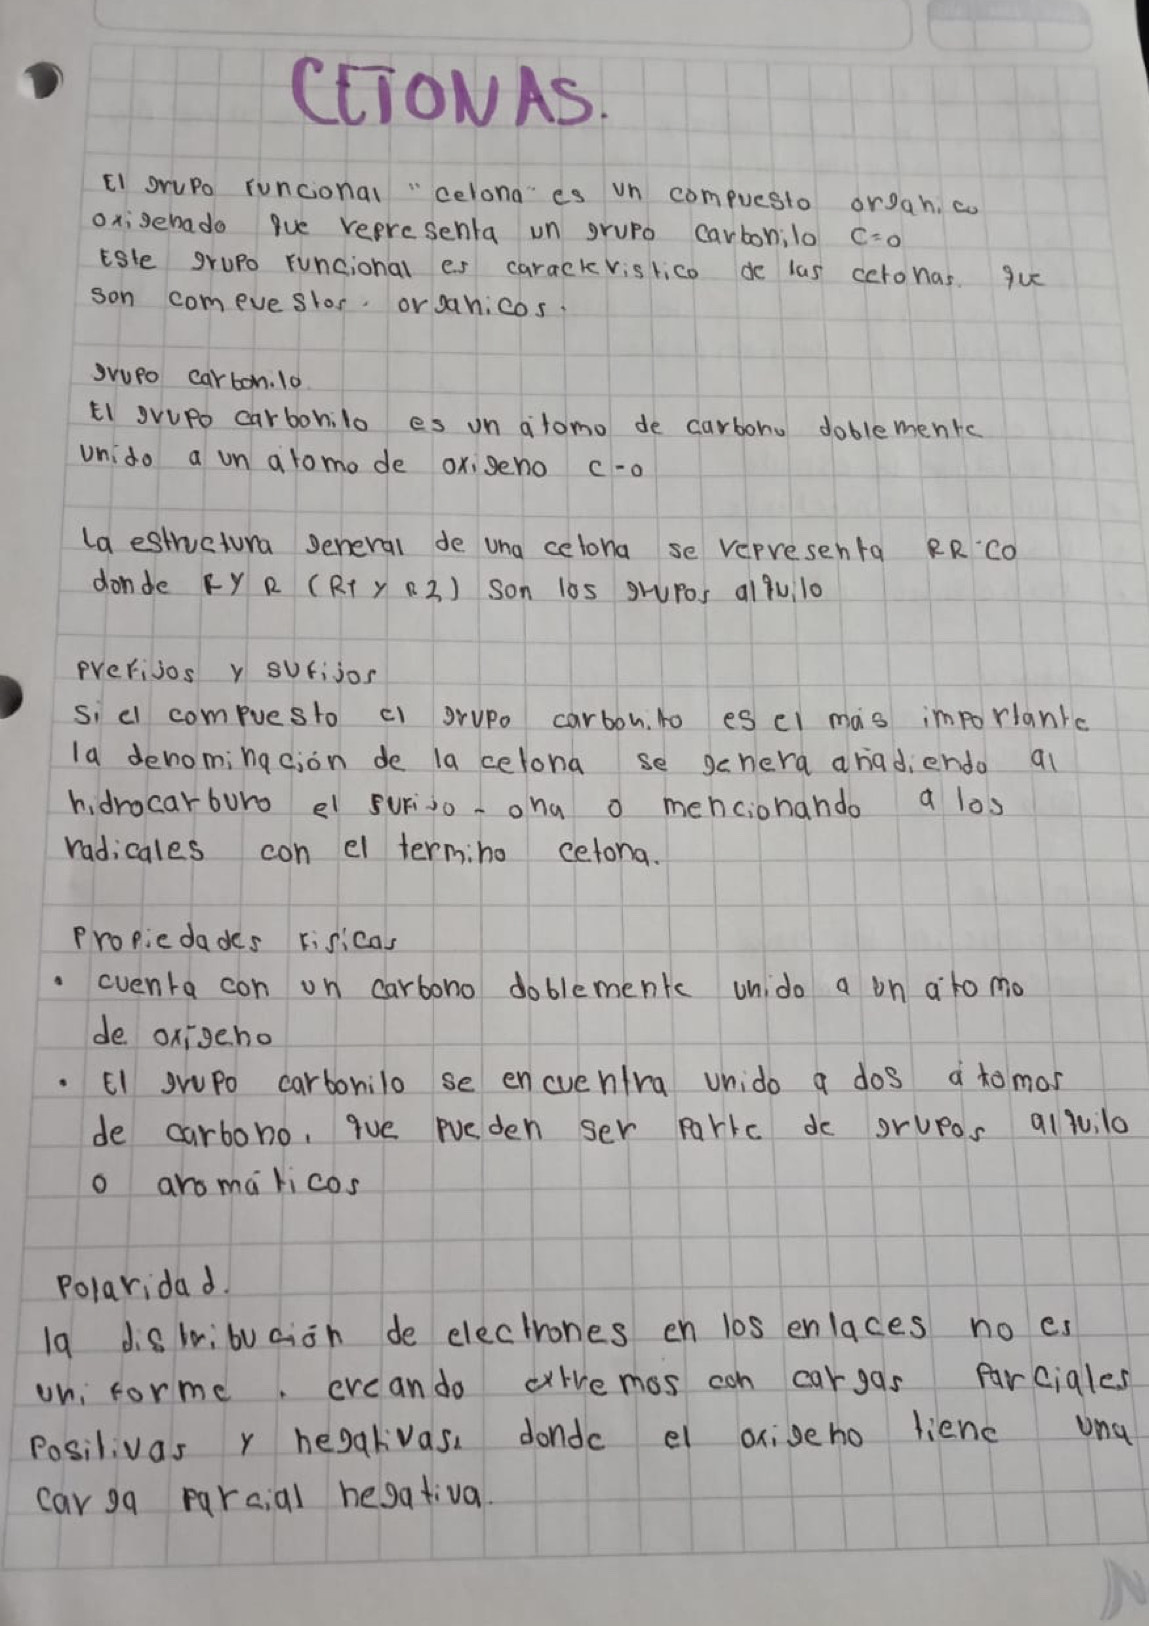 CETONAS.
El grupo funcional "cetona" es un compuesto organico
oxigenado que representa un grupo carbonilo C=O
Este grupo funcional es caracteristico de las cetonas. que
son compuestos. organicos.
grupo carbonilo.
El grupo carbonilo es un átomo de carbono doblemente
unido a un átomo de oxigeno C-O
La estructura general de una cetona se representa RR'CO
donde R y R (R1 y R2) son los grupos alquilo
Prefijos y sufijos
Si el compuesto el grupo carbonilo es el más importante
la denominación de la cetona se genera añadiendo al
hidrocarburo el sufijo - ona o mencionando a los
radicales con el termino cetona.
Propiedades fisicas
• cuenta con un carbono doblemente unido a un átomo
de oxigeno
• El grupo carbonilo se encuentra unido a dos átomos
de carbono, que pueden ser parte de grupos alquilo
o aromáticos
Polaridad.
la distribución de electrones en los enlaces no es
uniforme, creando extremos con cargas parciales
positivas y negativas, donde el oxigeno tiene una
carga parcial negativa.
N